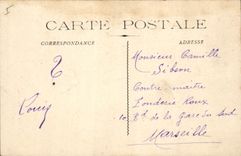 5
CARTE POSTALE
CORRESPONDANCE
ADRESSE
Monsieur Camille
Sibson
?
Contre maitre
Fonderie Roux
Louis
10. Bd de la Gare du Sud
Marseille